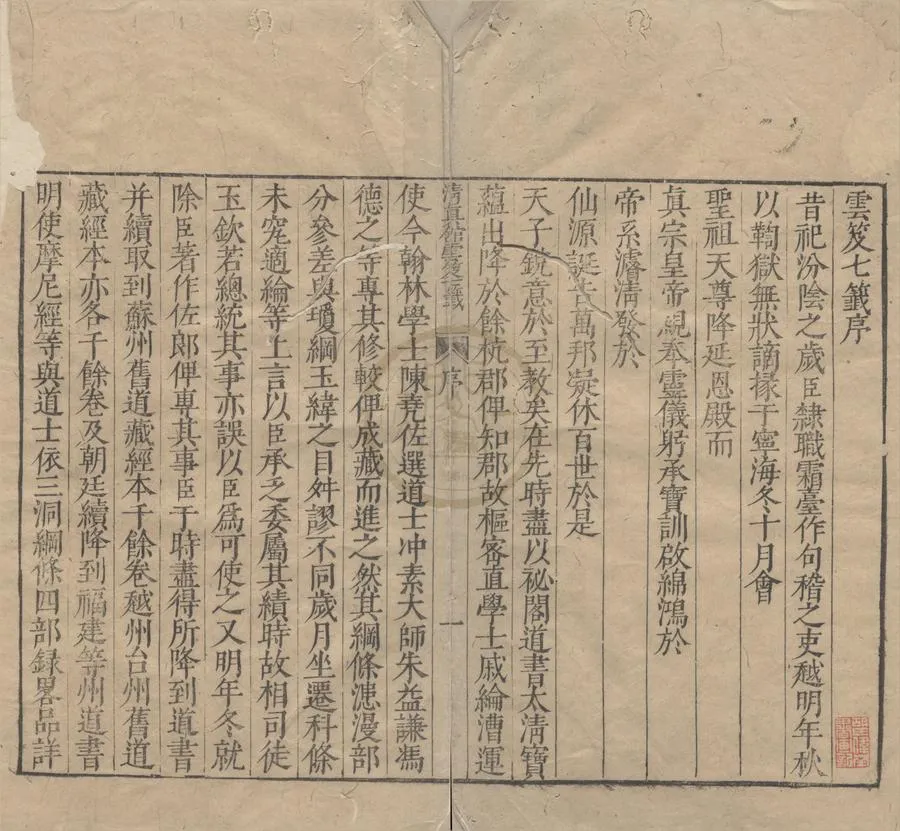 雲笈七籤序
昔祀汾陰之歲臣隸職霜臺作句稽之吏越明年秋
以鞫獄無狀謫掾于寧海冬十月會
聖祖天尊降延恩殿而
眞宗皇帝親奉靈儀躬承寶訓啟綿鴻於
帝系濬清發於
仙源誕告萬邦凝休百世於是
天子銳意於至教矣在先時盡以祕閣道書太清寶
蘊出降於餘杭郡俾知郡故樞密直學士戚綸漕運
清真館雲笈七籤
序
一
使今翰林學士陳堯佐選道士冲素大師朱益謙馮
德之等專其修較俾成藏而進之然其綱條漶漫部
分參差與瓊綱玉緯之目舛謬不同歲月坐遷科條
未究適綸等上言以臣承之委屬其績時故相司徒
王欽若總統其事亦誤以臣爲可使之又明年冬就
除臣著作佐郎俾專其事臣于時盡得所降到道書
并續取到蘇州舊道藏經本千餘卷越州台州舊道
藏經本亦各千餘卷及朝廷續降到福建等州道書
明使摩尼經等與道士依三洞綱條四部録畧品詳